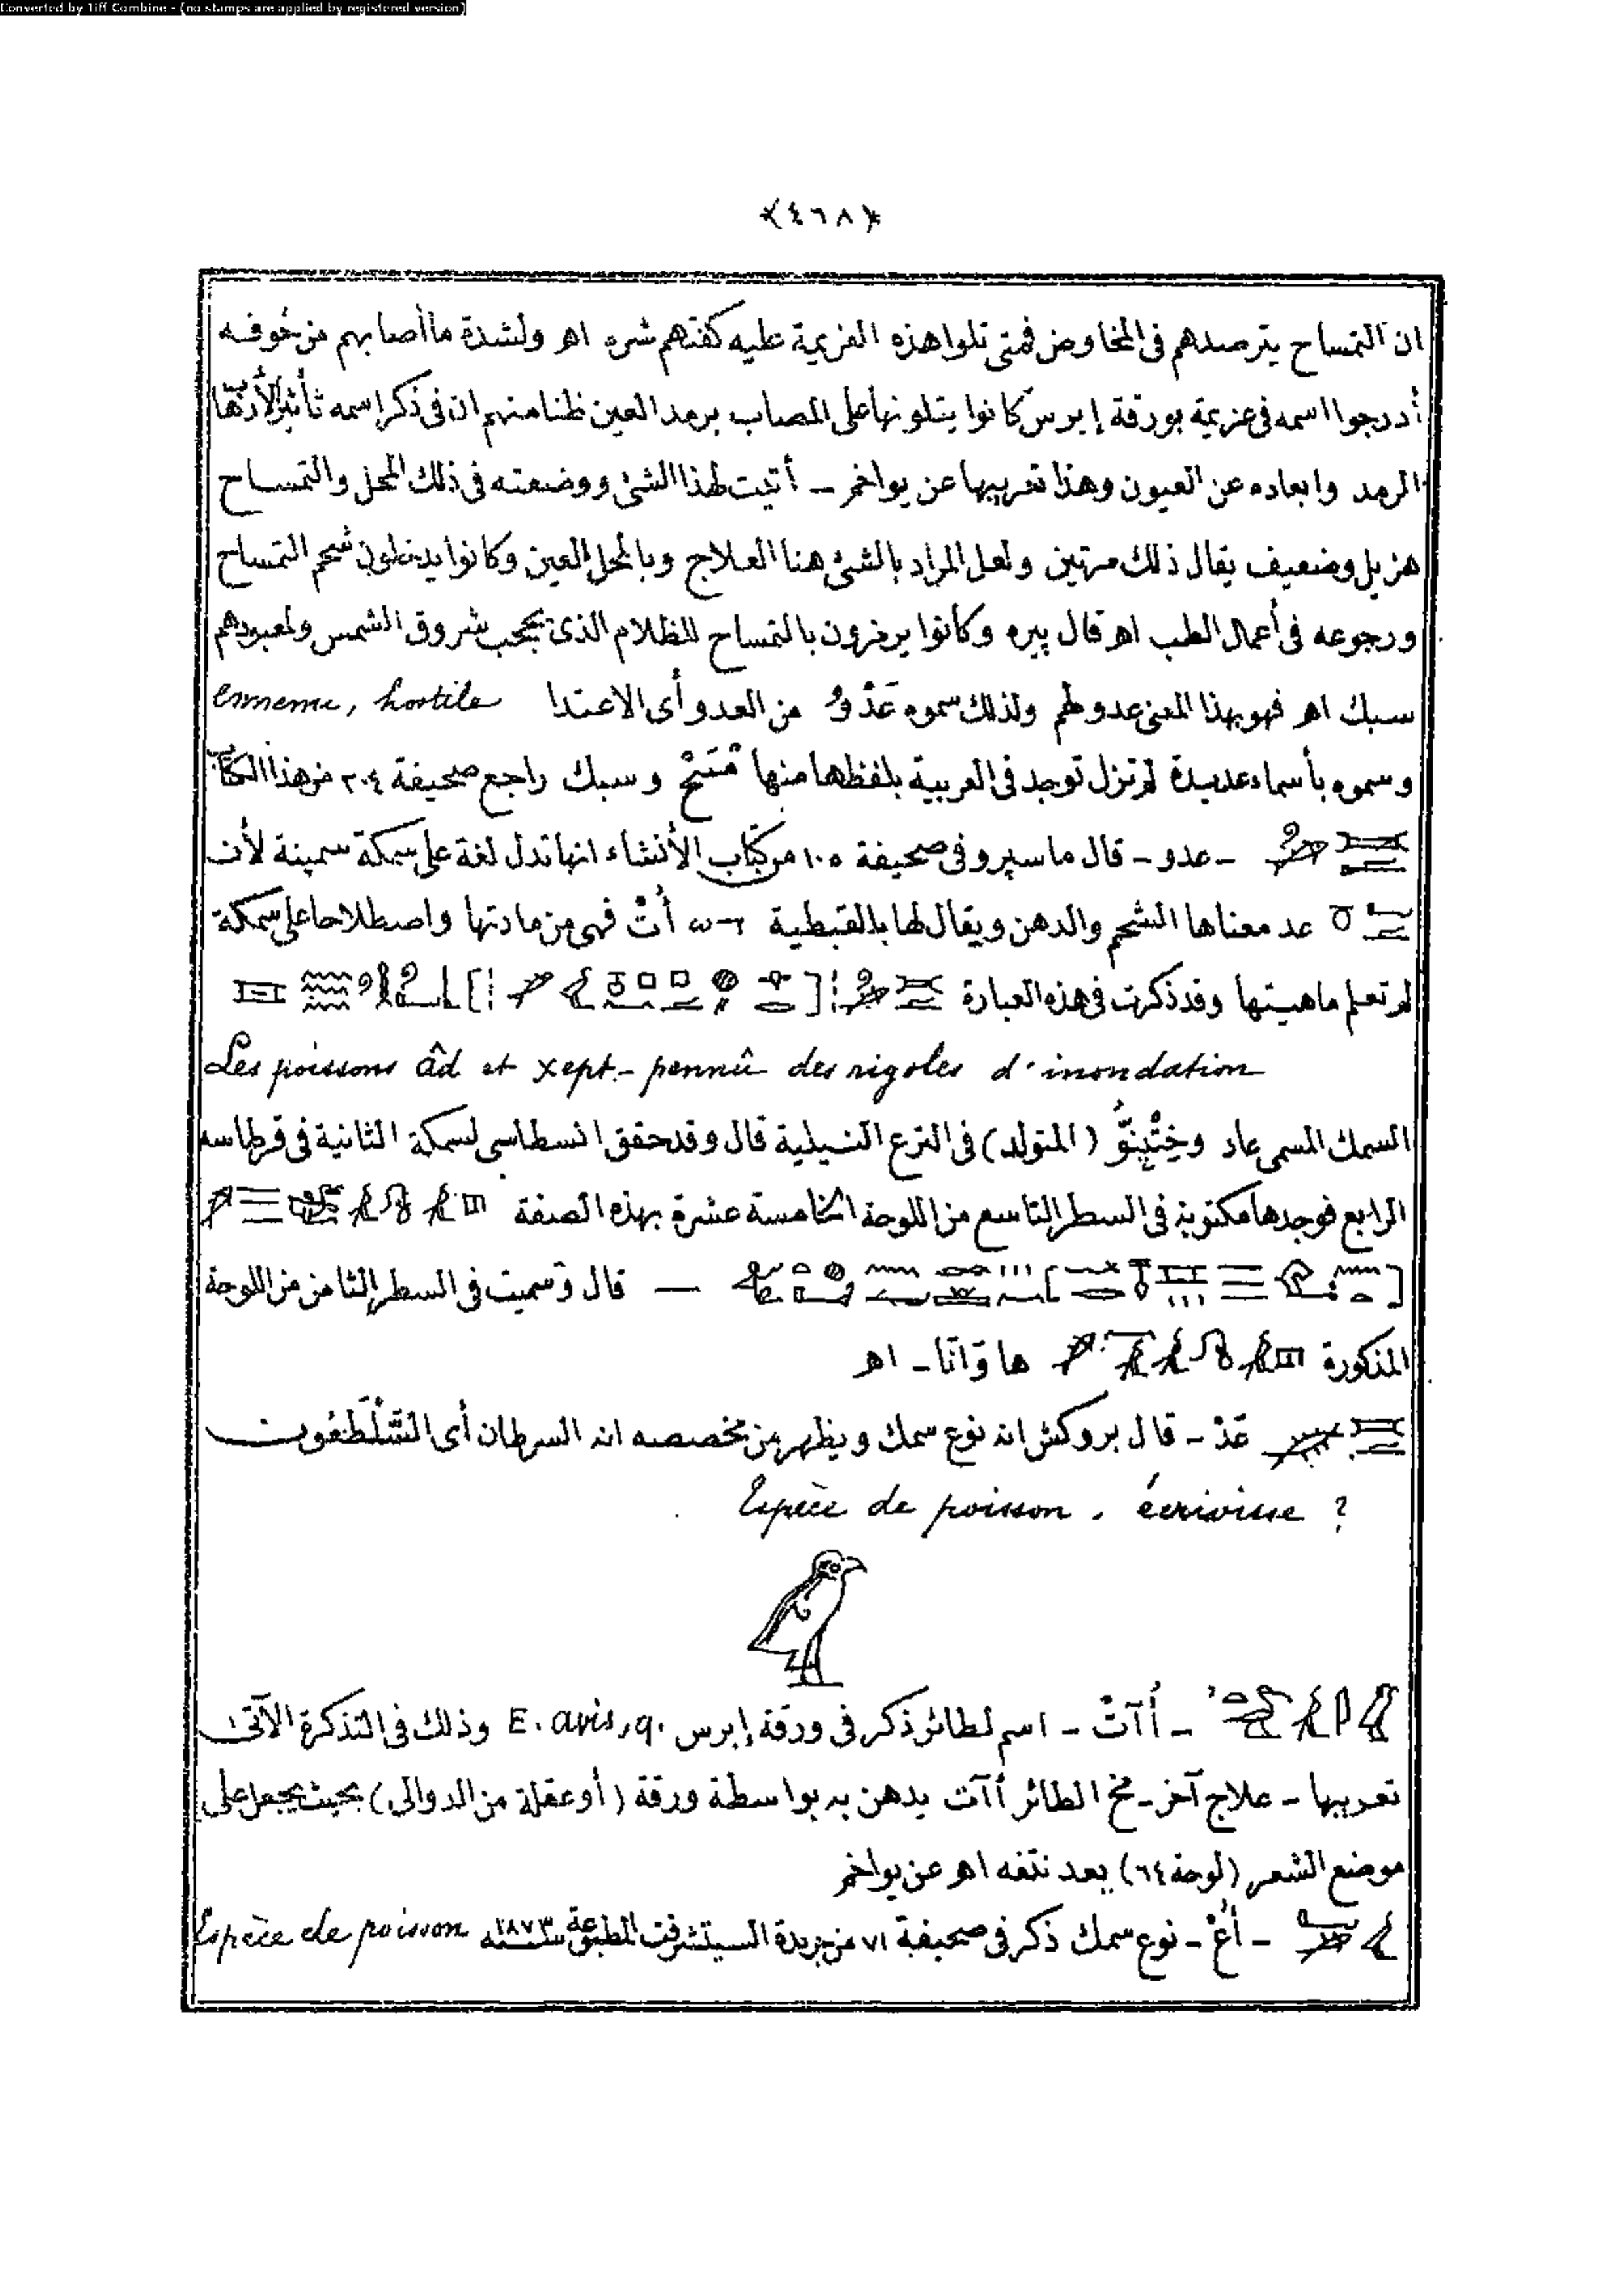 Converted by Tiff Combine - (no stamps are applied by registered version)
﴿٤٦٨﴾
ان التمساح يترصدهم فى المخاوض فمتى تلوا هذه العزيمة عليه كفتهم شره اهـ ولشدة ما أصابهم من خوفه
أدرجوا اسمه فى عزيمة بورقة إبرس كانوا يتلونها على المصاب برمد العين ظنا منهم ان فى ذكر اسمه تأثير
الرمد وابعاده عن العيون وهذا تعريبها عن يواخم ـ أتيت لهذا الشئ ووضعته فى ذلك المحل والتمساح
هزيل وضعيف يقال ذلك مرتين ولعل المراد بالشئ هنا العلاج وبالمحل العين وكانوا يدخلون شحم التمساح
ورجوعه فى أعمال الطب اهـ قال پيره وكانوا يرمزون بالتمساح للظلام الذى يحجب شروق الشمس ولمعبودهم
سبك اهـ فهو بهذا المعنى عدو لهم ولذلك سموه عَدْوُ من العدو أى الاعتدا ennemi, hostile
وسموه بأسماء عديدة لم تزل توجد فى العربية بلفظها منها مْسَحْ وسبك راجع صحيفة ٢٠٤ من هذا الكتاب
ـ عدو ـ قال ماسپرو فى صحيفة ١٠٥ من كتاب الأنشاء انها تدل لغة على سمكة سمينة لأن
عد معناها الشحم والدهن ويقال لها بالقبطية أُتْ فهى من مادتها واصطلاحا على سمكة
لم تعلم ماهيتها وقد ذكرت فى هذه العبارة
Les poissons âd et xept-pennû des rigoles d'inondation
السمك المسمى عاد وخِتْپِنّوُ (المتولد) فى الترع النيلية قال وقد حقق انسطاسى لسمكة الثانية فى قرطاسه
الرابع فوجدها مكتوبة فى السطر التاسع من اللوحة الخامسة عشرة بهذه الصفة
— قال وسميت فى السطر الثامن من اللوحة
المذكورة ها وَانَا ـ اهـ
عَدْ ـ قال بروكش انه نوع سمك ويظهر من مخصصه انه السرطان أى الشَلْطَعُون
Espèce de poisson, écrivisse ?
ـ أُآتْ ـ اسم لطائر ذكر فى ورقة إبرس E. avis, q. وذلك فى التذكرة الآتى
تعريبها ـ علاج آخر ـ مخ الطائر أآت يدهن به بواسطة ورقة (أو عقلة من الدوالى) بحيث يجعل على
موضع الشعر (لوحة ٦٤) بعد نتفه اهـ عن يواخم
ـ أُعْ ـ نوع سمك ذكر فى صحيفة ٧١ من جريدة السيتشرفت المطبوعة سنة ١٨٧٣ Espèce de poisson